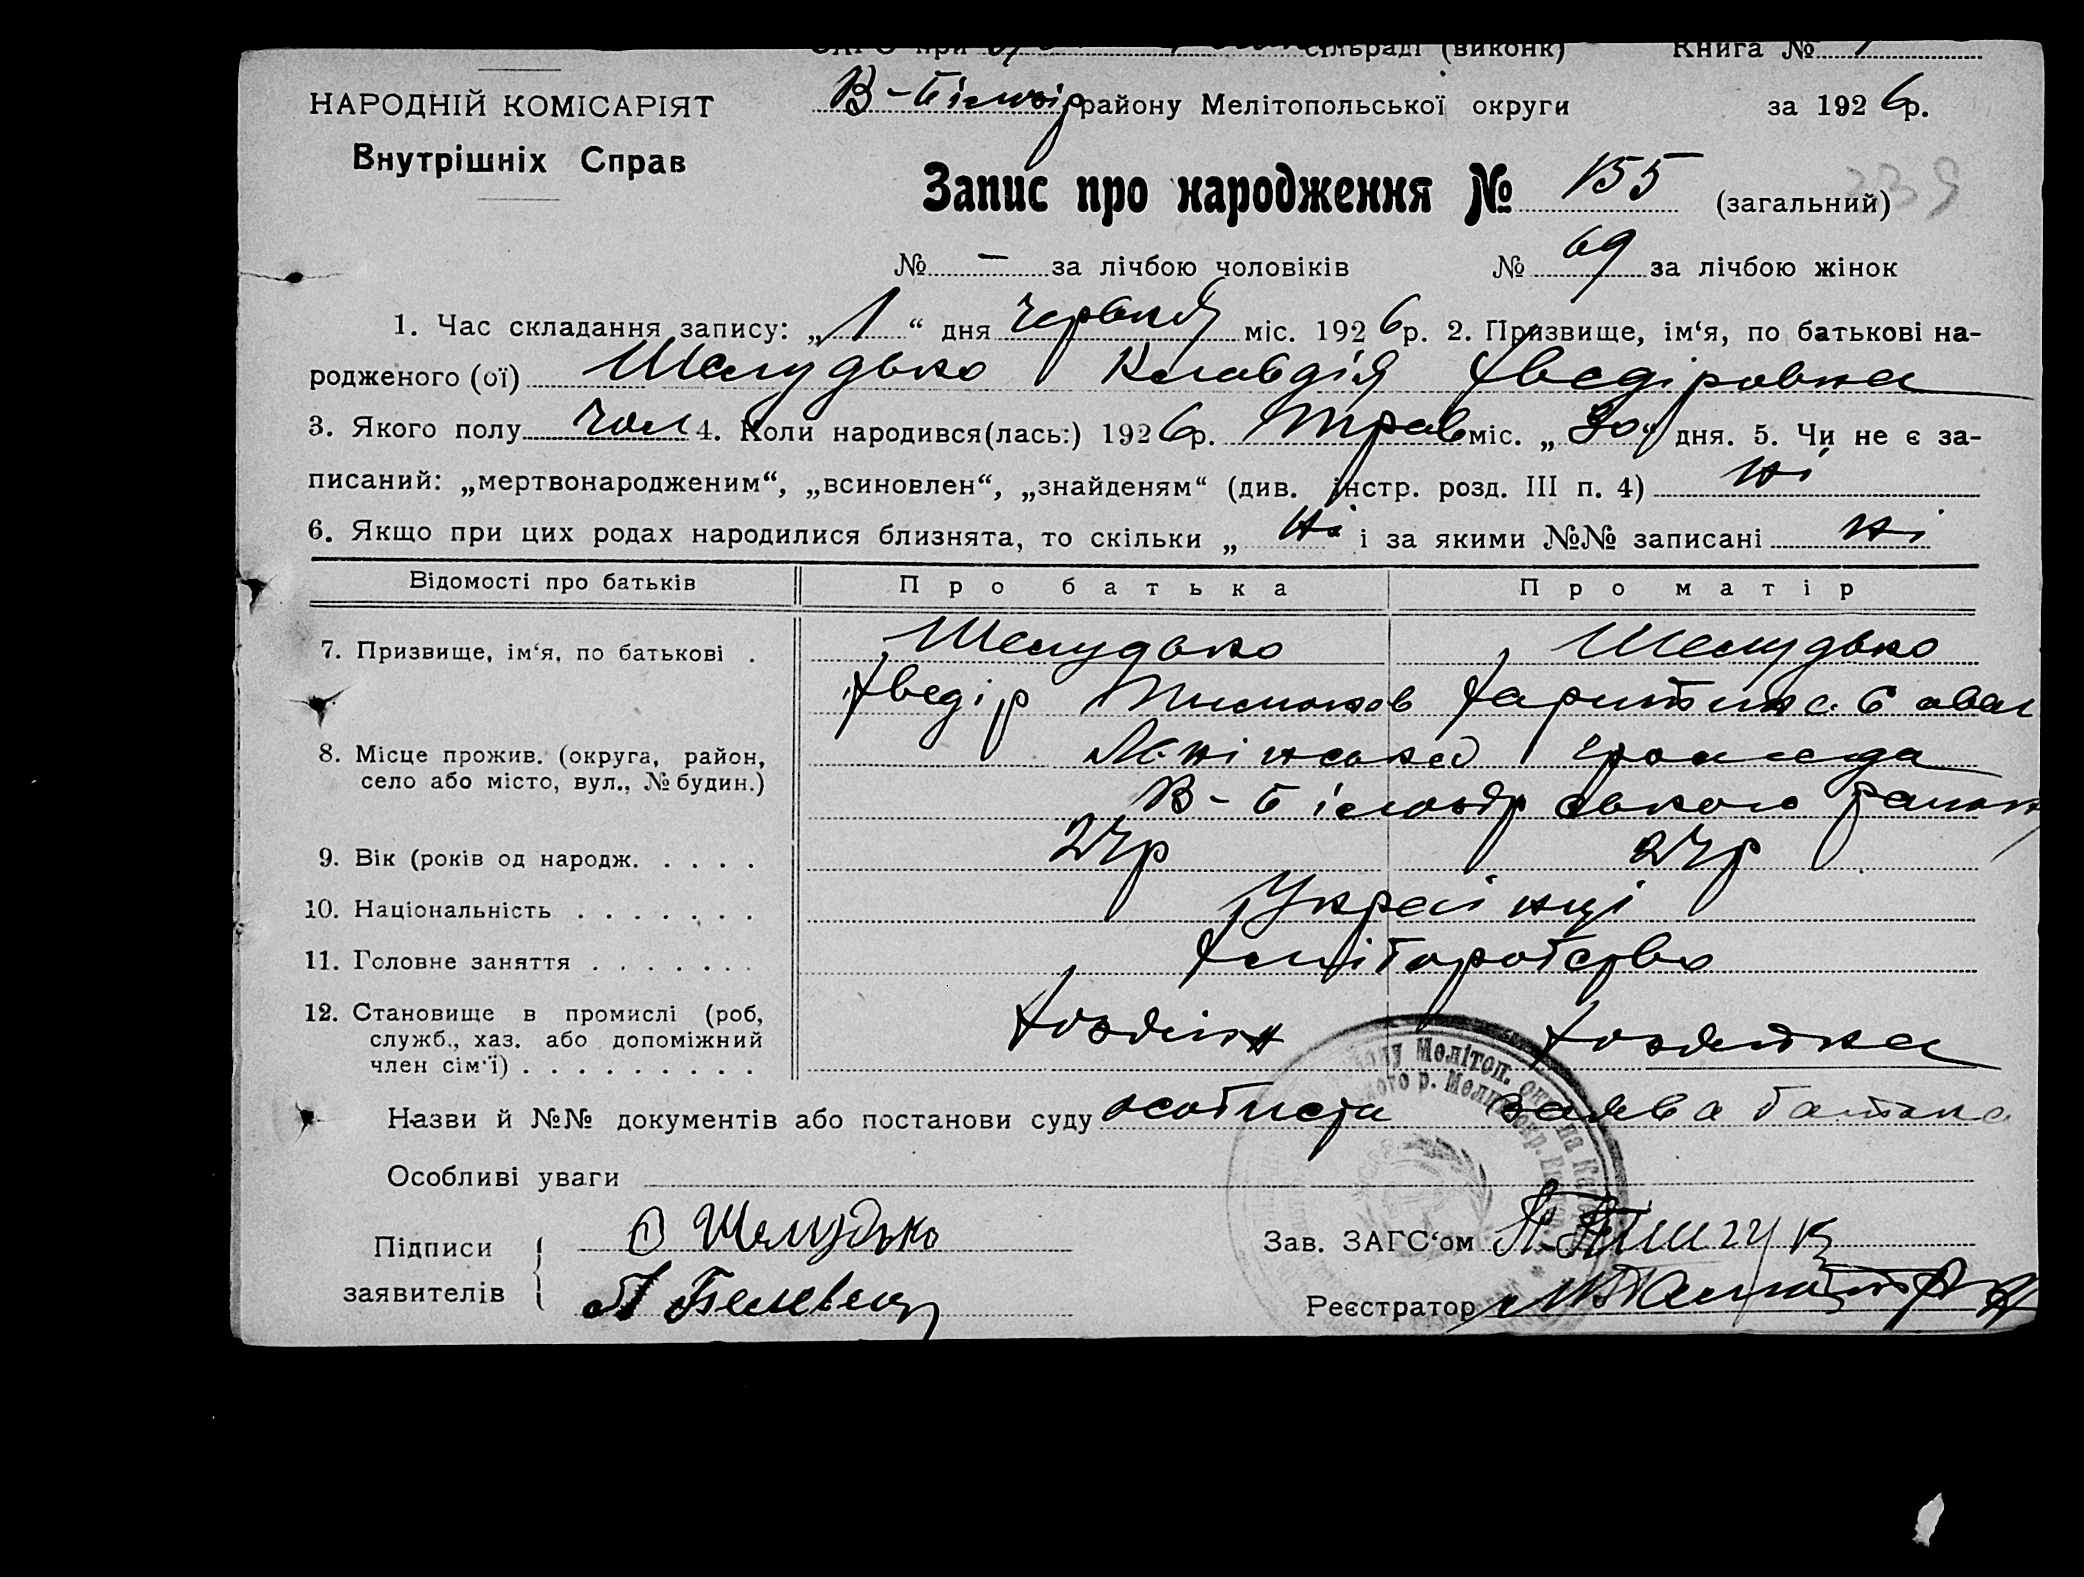 ЗАГС при сільраді (виконк) Книга №
НАРОДНІЙ КОМІСАРІЯТ
Внутрішніх Справ
В-Білозір району Мелітопольської округи за 1926 р.
Запис про народження № 155 (загальний) 239
№ — за лічбою чоловіків № 69 за лічбою жінок
1. Час складання запису: „1“ дня червня міс. 1926 р. 2. Призвище, ім‘я, по батькові на-
родженого (ої) Шелудько Клавдія Хведіровна
3. Якого полу чол 4. Коли народився(лась:) 1926 р. Трав міс. „30“ дня. 5. Чи не є за-
писаний: „мертвонародженим“, „всиновлен“, „знайденям“ (див. інстр. розд. III п. 4) ні
6. Якщо при цих родах народилися близнята, то скільки „ ні і за якими №№ записані ні
Відомості про батьків Про батька Про матір
7. Призвище, ім‘я, по батькові . Шелудько Шелудько
Хведір Тимонов Харитина
8. Місце прожив. (округа, район,
село або місто, вул., № будин.)
громада
В-Білозірського району
9. Вік (років од народж. . . . . 24р 24р
10. Національність . . . . . . . Українці
11. Головне заняття . . . . . . . Хліборобство
12. Становище в промислі (роб,
служб., хаз. або допоміжний
член сім‘ї) . . . . . . . . . . Хозяїн Хозяйка
Назви й №№ документів або постанови суду особиста заява батька
Особливі уваги
Підписи
заявителів
Шелудько
Зав. ЗАГС‘ом
Реєстратор